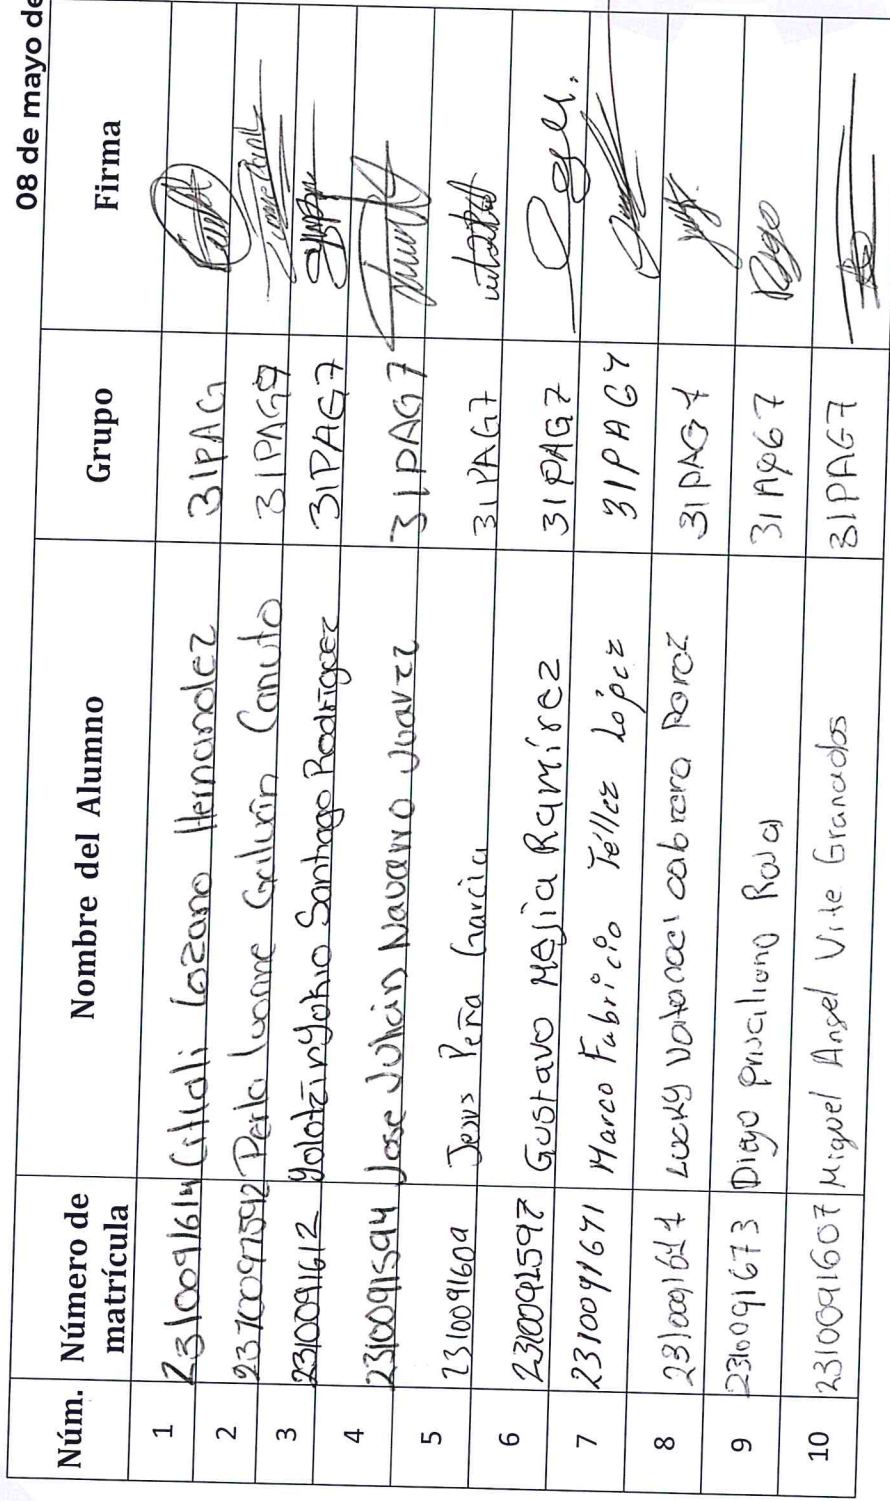 08 de mayo de
Núm. Número de matrícula Nombre del Alumno Grupo Firma
1 2310091614 Citlali Lozano Hernandez 31PAG
2 2310091592 Perla Ivonne Galván Canuto 31PAG7
3 2310091612 Yolotzin Yohio Santiago Rodríguez 31PAG7
4 2310091594 Jose Julian Navarro Juarez 31PAG7
5 2310091609 Jesus Peña Garcia 31PAG7
6 2310091597 Gustavo Mejía Ramírez 31PAG7
7 2310091671 Marco Fabricio Téllez López 31PAG7
8 Lucky cabrera 31PAG7
9 2310091673 Diego prisciliano Roja 31AP67
10 2310091607 Miguel Angel Vite Granados 31PAG7